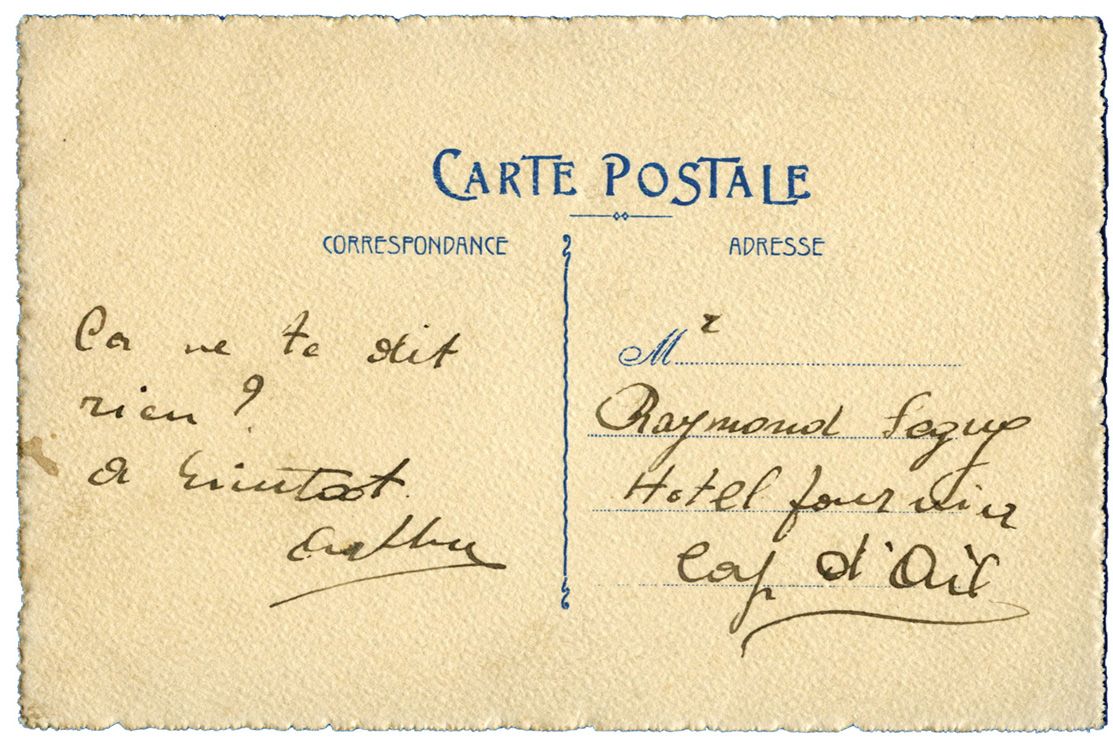 CARTE POSTALE
CORRESPONDANCE
ADRESSE
Ca ne te dit
rien ?
a bientot.
M r
Raymond
Hotel fournier
Cap d'Ail